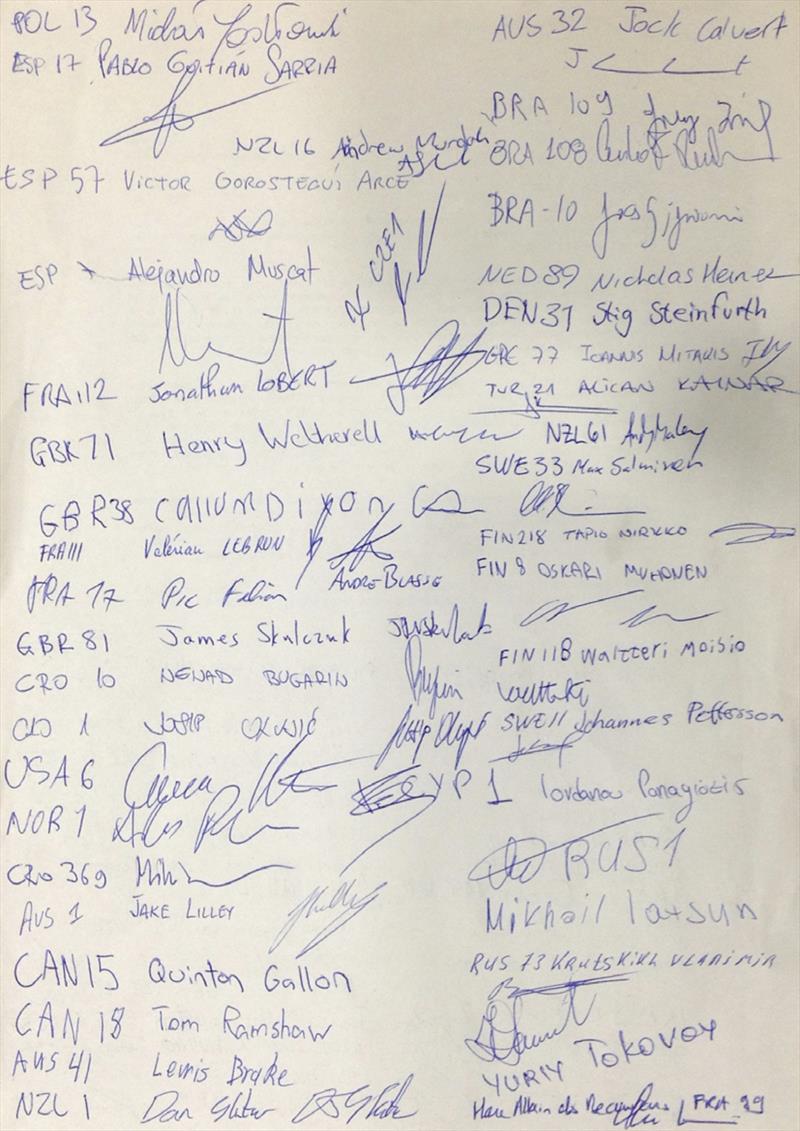 POL 13
ESP 17 PABLO GUITIÁN SARRIA
NZL 16 Andrew Murdoch
ESP 57 VICTOR GOROSTEGUI ARCE
CZE 1
ESP 7 Alejandro Muscat
FRA 112 Jonathan LOBERT
GBR 71 Henry Wetherell
GBR 38 CALLUM Dixon
FRA 111 Valérian LEBRUN
ANDRE BLASSE
FRA 17 Pic Fabian
GBR 81 James Skulczuk
CRO 10 NENAD BUGARIN
CRO 1 JOSIP OLUJIĆ
USA 6
NOR 1
CRO 369
AUS 1 JAKE LILLEY
CAN 15 Quinton Gallon
CAN 18 Tom Ramshaw
AUS 41 Lewis Brake
NZL 1 Dan Slater
AUS 32 Jock Calvert
BRA 109
BRA 108
BRA-10
NED 89 Nicholas Heiner
DEN 31 Stig Steinfurth
GRE 77 IOANNIS MITAKIS
TUR 21 ALICAN KAYNAR
NZL 61 Andy Maloney
SWE 33 Max Salminen
FIN 218 TAPIO NIRKKO
FIN 8 OSKARI MUHONEN
FIN 118 Waltteri Moisio
SWE 11 Johannes Pettersson
CYP 1 Iordanou Panagiotis
RUS 1
Mikhail Iatsun
RUS 73 Krutskikh Vladimir
YURIY TOKOVOY
Marc Allain des Beauvais FRA 99